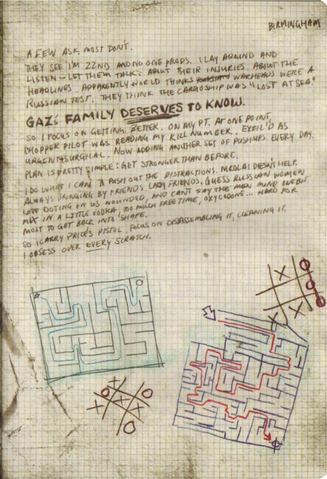 BIRMINGHAM
A FEW ASK, MOST DON'T.
THEY SEE I'M 22ND AND NO ONE PRODS. I LAY AROUND AND
LISTEN - LET THEM TALK: ABOUT THEIR INJURIES. ABOUT THE
HEADLINES. APPARENTLY WORLD THINKS WARHEADS WERE A
RUSSIAN TEST. THEY THINK THE CARGOSHIP WAS "LOST AT SEA"
GAZ' FAMILY DESERVES TO KNOW.
SO I FOCUS ON GETTING BETTER. ON MY PT. AT ONE POINT,
CHOPPER PILOT WAS READING MY KILL NUMBER. EXFIL'D AS
URGENT SURGICAL. NOW ADDING ANOTHER SET OF PUSHUPS EVERY DAY.
PLAN IS PRETTY SIMPLE: GET STRONGER THAN BEFORE.
I DO WHAT I CAN TO PUSH OUT THE DISTRACTIONS. NIKOLAI DOESN'T HELP.
ALWAYS BRINGING BY FRIENDS, LADY FRIENDS, GUESS RUSSIAN WOMEN
LOVE DOTING ON US WOUNDED, AND CAN'T SAY THE MEN MIND EITHER.
MIX IN A LITTLE VODKA, TOO MUCH FREE TIME, OXYCODONE... HARD FOR
MOST TO GET BACK INTO SHAPE.
SO I CARRY PRICE'S PISTOL. FOCUS ON DISASSEMBLING IT, CLEANING IT.
I OBSESS OVER EVERY SCRATCH.